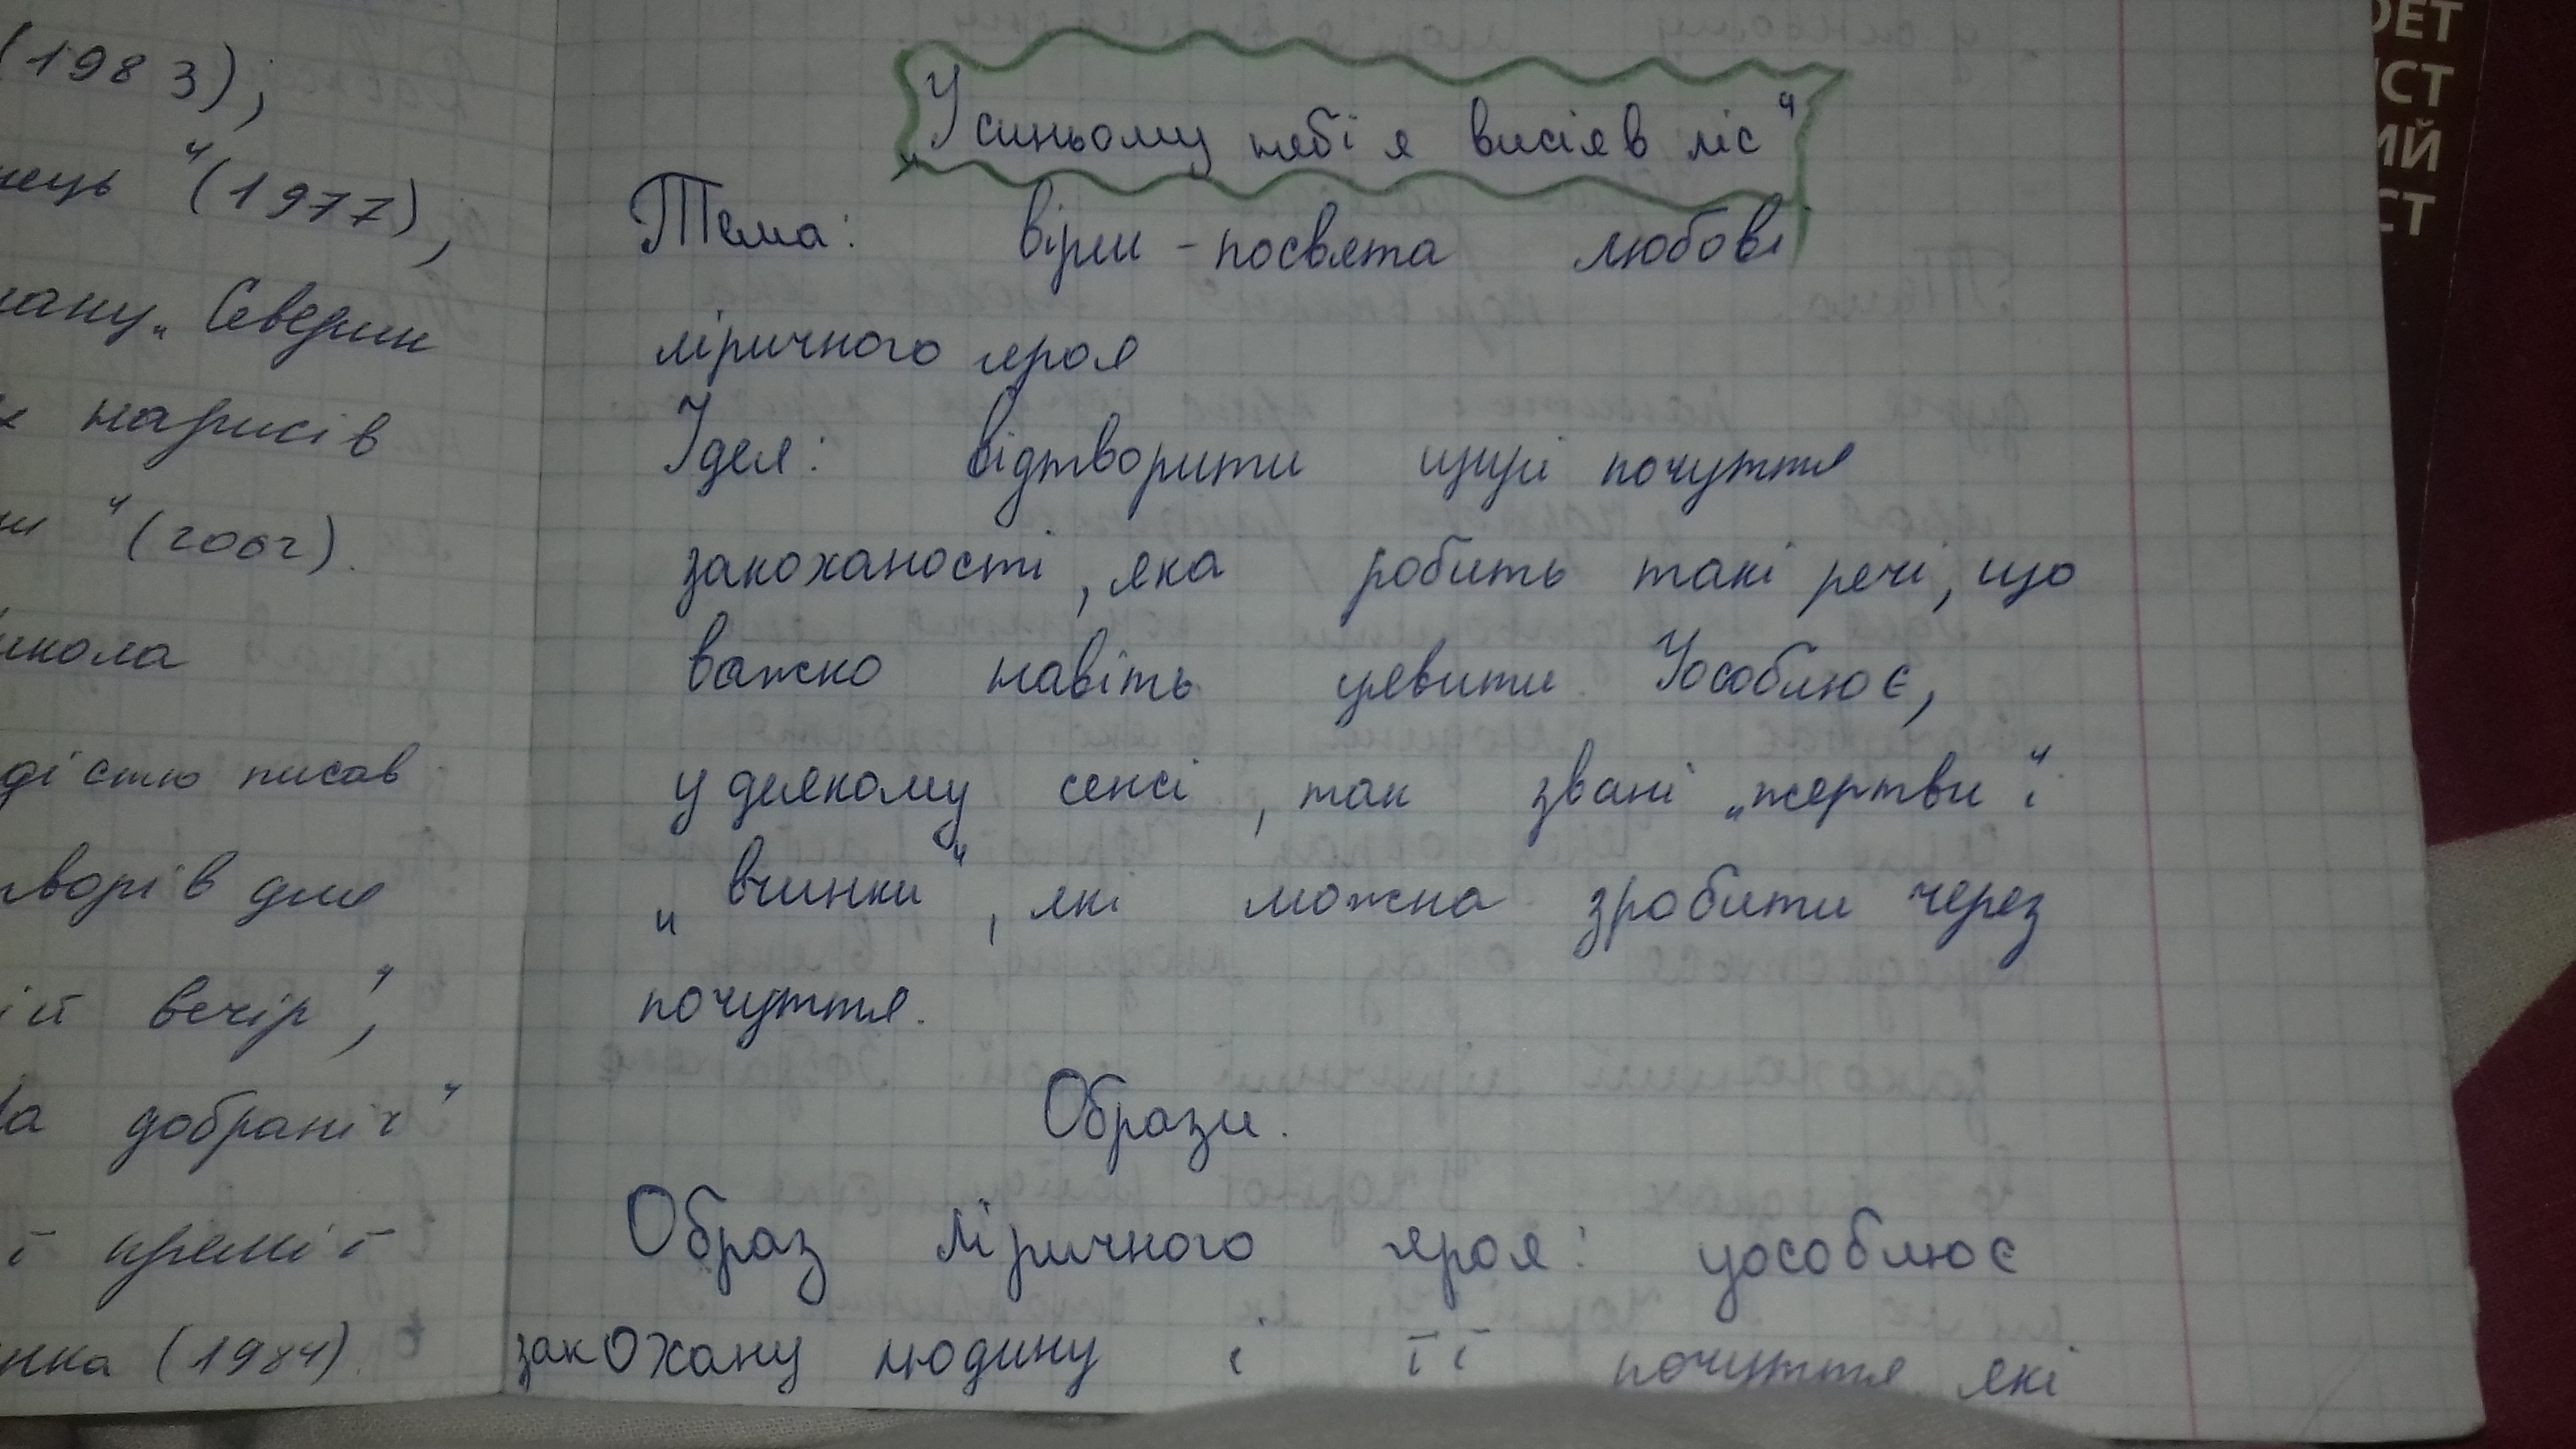 (1983);
нець“ (1977),
ману „Северин
х нарисів
“ (2002).
икола
дістю писав
творів для
ій вечір“,
а добраніч“
ї премії
нка (1984).
„У синьому небі я висіяв ліс“
Тема: вірш-посвята любові
ліричного героя
Ідея: відтворити щирі почуття
закоханості, яка робить такі речі, що
важко навіть уявити. Уособлює,
у деякому сенсі, так звані „жертви“ і
„вчинки“, які можна зробити через
почуття.
Образи.
Образ ліричного героя: уособлює
закохану людину і її почуття, які
ОЕТ
ИСТ
ИЙ
СТ